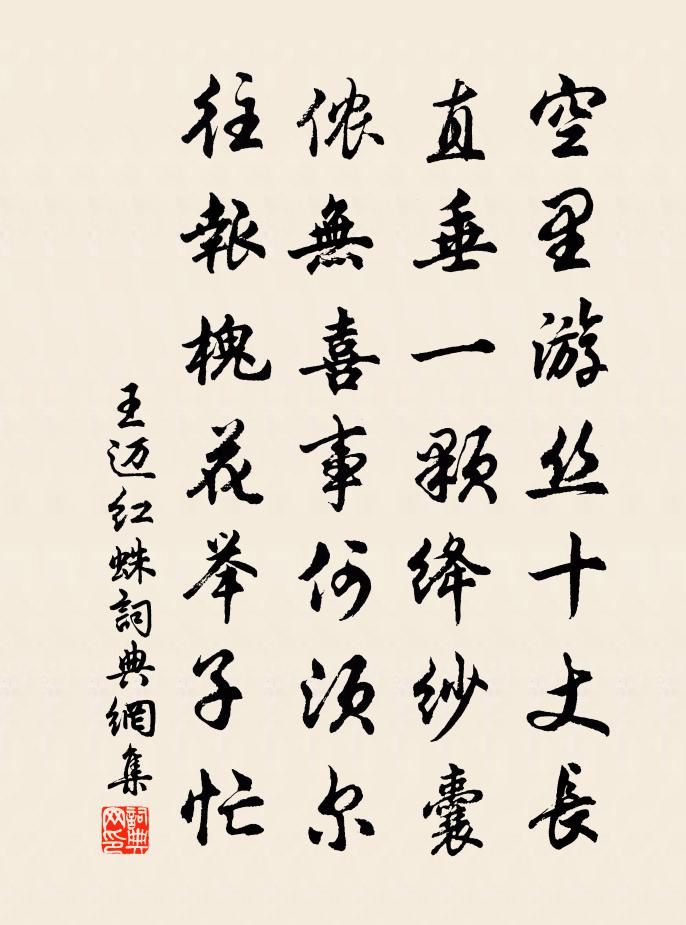 空里游丝十丈長
直垂一颗绛纱囊
侬無喜事何须尔
往報槐花举子忙
王迈红蛛詞典網集
詞典网印